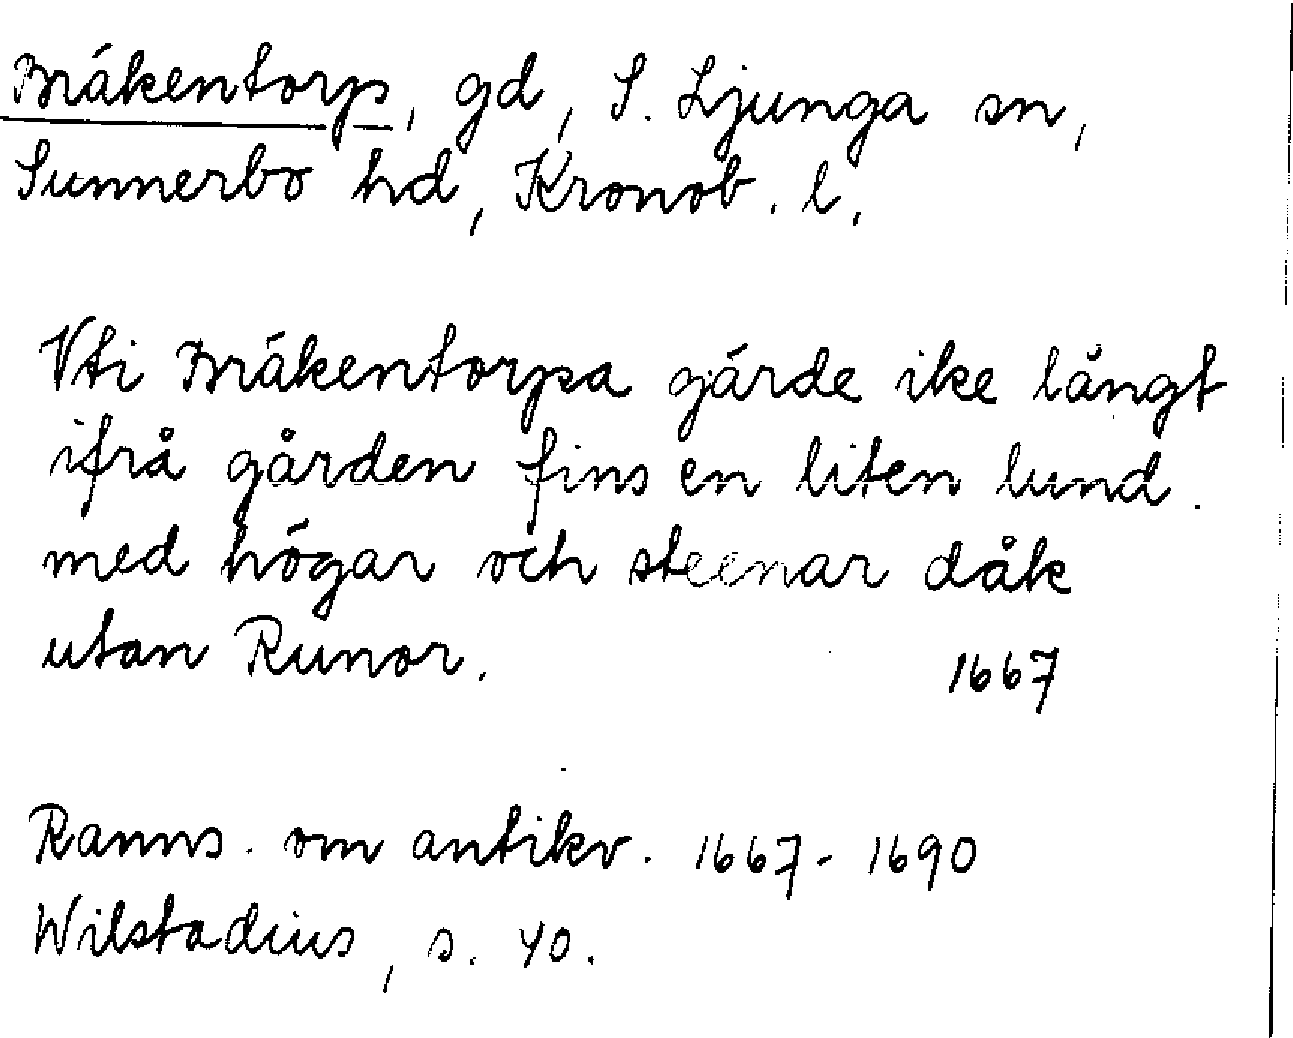 Bräkentorp, gd, S. Ljunga sn,
Sunnerbo hd, Kronob. l.
Vti Bräkentorpa gärde ike långt
ifrå gården fins en liten lund.
med högar och steenar dåk
utan Runor. 1667
Ranns. om antikv. 1667-1690
Wilstadius, s. 40.